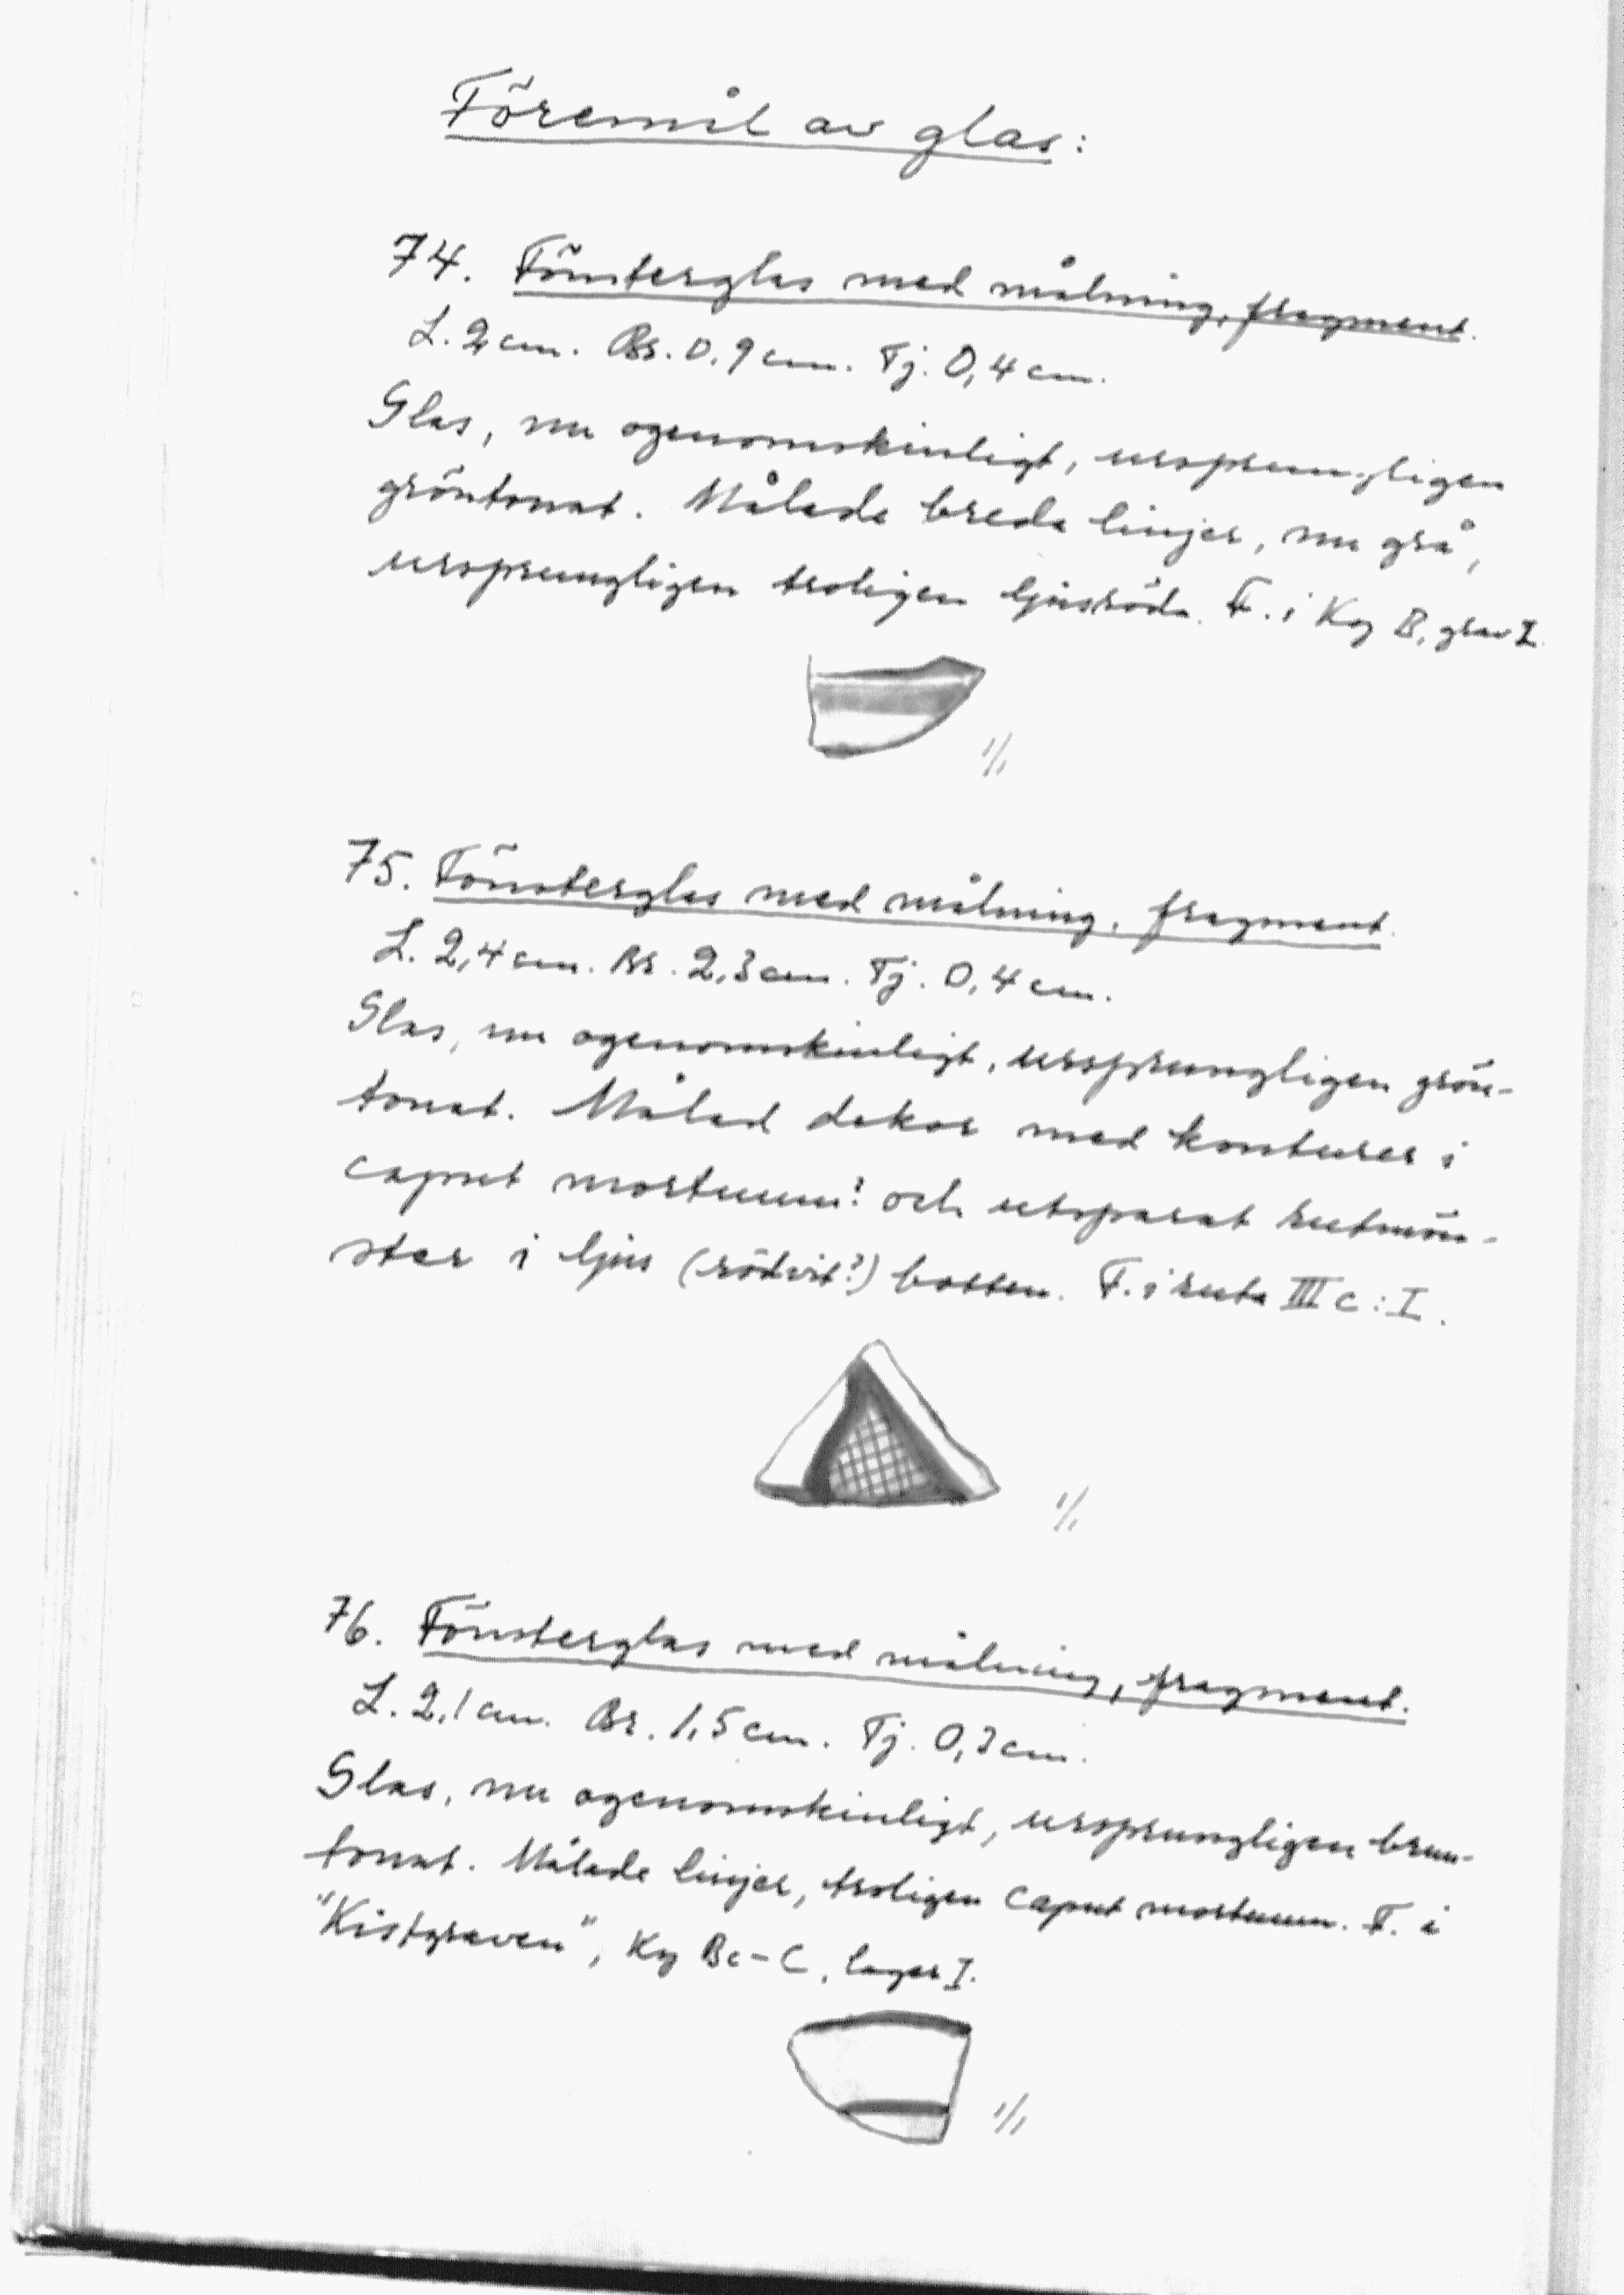 Föremål av glas:
74. Fönsterglas med målning, fragment.
L. 2 cm. Br. 0,9 cm. Tj. 0,4 cm.
Glas, nu ogenomskinligt, ursprungligen
gröntonat. Målade breda linjer, nu grå,
ursprungligen troligen ljusröda. F. i Ky B, grav I.
1/1
75. Fönsterglas med målning, fragment.
L. 2,4 cm. Br. 2,3 cm. Tj. 0,4 cm.
Glas, nu ogenomskinligt, ursprungligen grön-
tonat. Målad dekor med konturer i
caput mortuum? och utsparat rutmön-
ster i ljus (rödvit?) botten. F. i ruta III c : I.
1/1
76. Fönsterglas med målning, fragment.
L. 2,1 cm. Br. 1,5 cm. Tj. 0,3 cm.
Glas, nu ogenomskinligt, ursprungligen brun-
tonat. Målade linjer, troligen caput mortuum. F. i
"Kistgraven", Ky Bc-C, lager I.
1/1